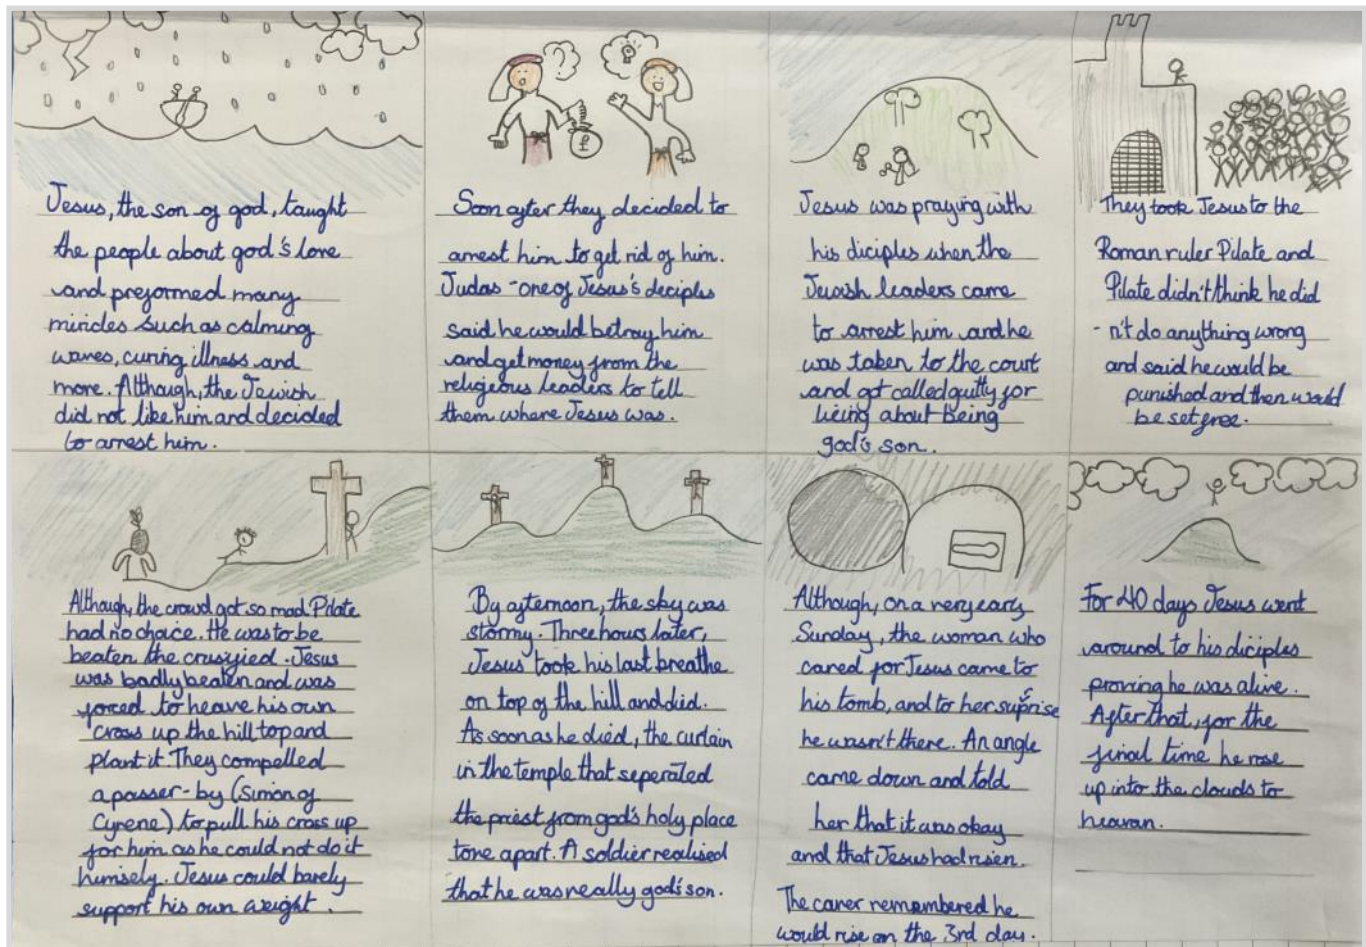 Jesus, the son of god, taught
the people about god's love
and preformed many
miricles such as calming
waves, curing illness and
more. Although, the Jewish
did not like him and decided
to arrest him.
Soon after they decided to
arrest him to get rid of him.
Judas - one of Jesus's deciples
said he would betray him
and get money from the
religious leaders to tell
them where Jesus was.
Jesus was praying with
his diciples when the
Jewish leaders came
to arrest him and he
was taken to the court
and got called guilty for
lieing about being
god's son.
They took Jesus to the
Roman ruler Pilate and
Pilate didn't think he did
- n't do anything wrong
and said he would be
punished and then would
be set free.
Although, the crowd got so mad Pilate
had no choice. He was to be
beaten the crusyfied. Jesus
was badly beaten and was
forced to heave his own
cross up the hill top and
plant it. They compelled
a passer-by (Simon of
Cyrene) to pull his cross up
for him as he could not do it
himself. Jesus could barely
support his own weight.
By afternoon, the sky was
stormy. Three hours later,
Jesus took his last breathe
on top of the hill and died.
As soon as he died, the curtain
in the temple that seperated
the priest from god's holy place
tone apart. A soldier realised
that he was really god's son.
Although, on a very early
Sunday, the woman who
cared for Jesus came to
his tomb, and to her suprise
he wasn't there. An angle
came down and told
her that it was okay
and that Jesus had risen.
The carer remembered he
would rise on the 3rd day.
For 40 days Jesus went
around to his diciples
proving he was alive.
After that, for the
final time he rose
up into the clouds to
heavan.